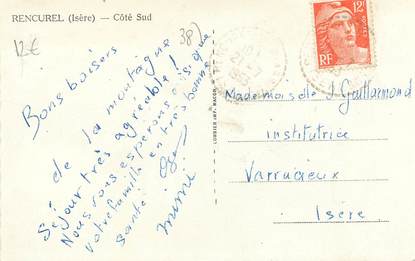 RENCUREL (Isère) — Côté Sud
12€
38
Bons baisers
de la montagne
Séjour très agréable !
Nous vous espérons ainsi que
votre famille en très bonne
santé.
Mimi
12F
RF
Mademoiselle J Gaillamond
institutrice
Varacieux
Isère